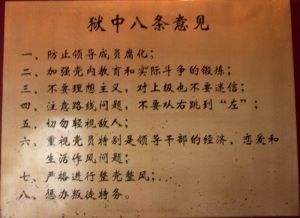 狱中八条意见
一、防止领导成员腐化；
二、加强党内教育和实际斗争的锻炼；
三、不要理想主义，对上级也不要迷信；
四、注意路线问题，不要从右跳到“左”；
五、切勿轻视敌人；
六、重视党员特别是领导干部的经济、恋爱和
生活作风问题；
七、严格进行整党整风；
八、惩办叛徒特务。